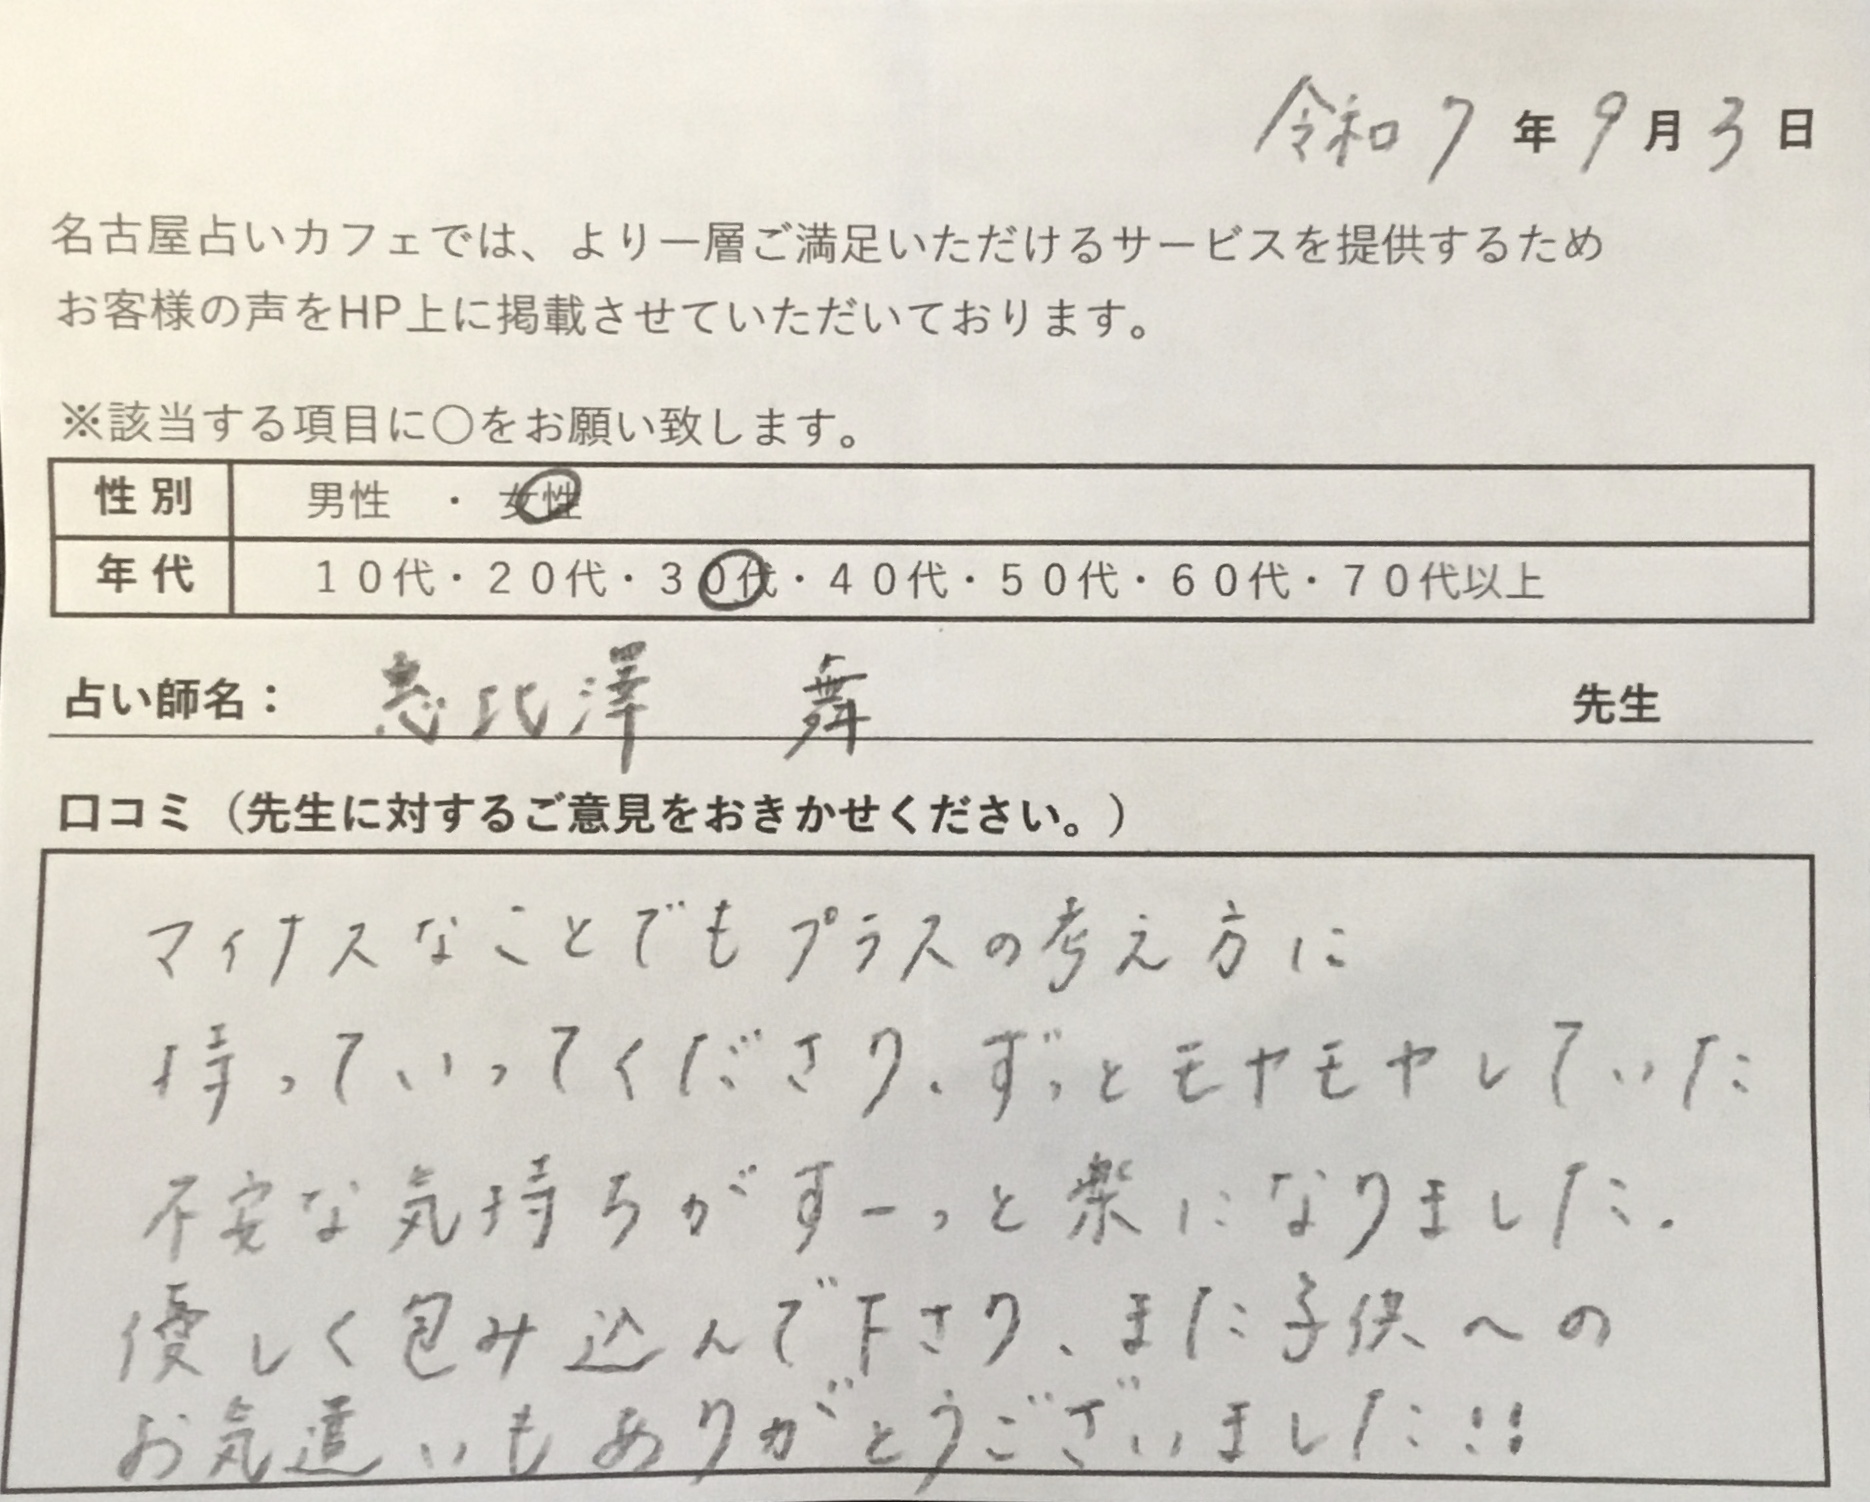 令和7年9月3日
名古屋占いカフェでは、より一層ご満足いただけるサービスを提供するため
お客様の声をHP上に掲載させていただいております。
※該当する項目に〇をお願い致します。
性別 男性 ・ 女性
年代 10代・20代・30代・40代・50代・60代・70代以上
占い師名： 恵比澤 舞 先生
口コミ（先生に対するご意見をおきかせください。）
マイナスなことでもプラスの考え方に
持っていってくださり、ずっとモヤモヤしていた
不安な気持ちがすーっと楽になりました.
優しく包み込んで下さり、また子供への
お気遣いもありがとうございました!!